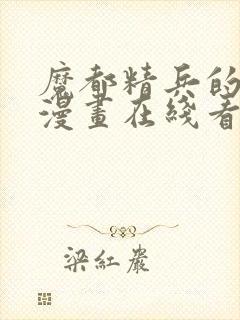 魔都精兵的
漫畫在綫看
梁紅巖